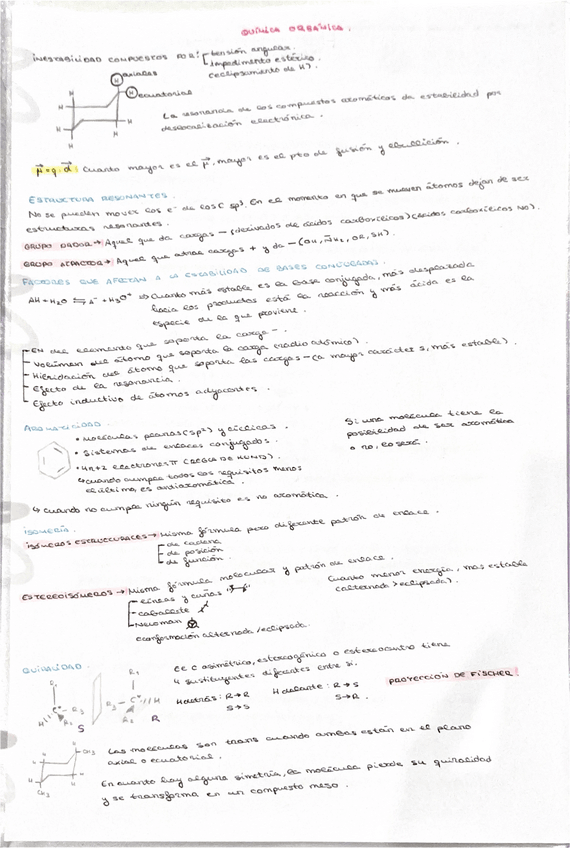 QUÍMICA ORGÁNICA.
INESTABILIDAD COMPUESTOS POR:
tensión angular.
impedimento estérico.
(eclipsamento de H).
H axiales
H ecuatorial
H
H
H
H
La resonancia de los compuestos aromáticos da estabilidad por
deslocalización electrónica.
μ = q · d : Cuanto mayor es el μ, mayor es el pto de fusión y ebullición.
ESTRUCTURA RESONANTES.
No se pueden mover los e⁻ de los C sp³. En el momento en que se mueven átomos dejan de ser
estructuras resonantes.
GRUPO DADOR → Aquel que da cargas − (derivados de ácidos carboxílicos) (ácidos carboxílicos NO).
GRUPO ATRACTOR → Aquel que atrae cargas + y da − (OH, NH₂, OR, SH).
FACTORES QUE AFECTAN A LA ESTABILIDAD DE BASES CONJUGADAS.
AH + H₂O ⇆ A⁻ + H₃O⁺ ⇒ Cuanto más estable es la base conjugada, más desplazada
hacia los productos está la reacción y más ácida es la
especie de la que proviene.
EN del elemento que soporta la carga −.
Volúmen del átomo que soporta la carga (radio atómico).
Hibridación del átomo que soporta las cargas − (a mayor carácter s, más estable).
Efecto de la resonancia.
Efecto inductivo de átomos adyacentes.
AROMATICIDAD.
• Moléculas planas (sp²) y cíclicas.
• Sistemas de enlaces conjugados.
• 4n+2 electrones π (REGLA DE HUND).
↳ cuando cumple todos los requisitos menos
el último, es antiaromática.
Si una molécula tiene la
posibilidad de ser aromática
o no, lo será.
↳ Cuando no cumple ningún requisito es no aromática.
ISOMERÍA.
ISÓMEROS ESTRUCTURALES → Misma fórmula pero diferente patrón de enlace.
de cadena
de posición
de función.
ESTEREOISÓMEROS → Misma fórmula molecular y patrón de enlace.
Líneas y cuñas
caballete
Newman
conformación alternada / eclipsada.
Cuando menor energía, más estable
(alternada > eclipsada).
QUIRALIDAD.
El C asimétrico, estereogénico o estereocentro tiene
4 sustituyentes diferentes entre sí.
H detrás: R→R
S→S
H delante: R→S
S→R.
PROYECCIÓN DE FISCHER
S
R
CH₃
CH₃
Las moléculas son trans cuando ambas están en el plano
axial o ecuatorial.
En cuanto hay alguna simetría, la molécula pierde su quiralidad
y se transforma en un compuesto meso.